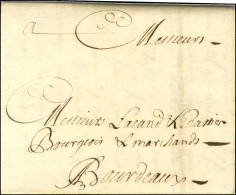 a Messieurs
Messieurs Lacand &
Bourgeois & marchands
Bourdeaux